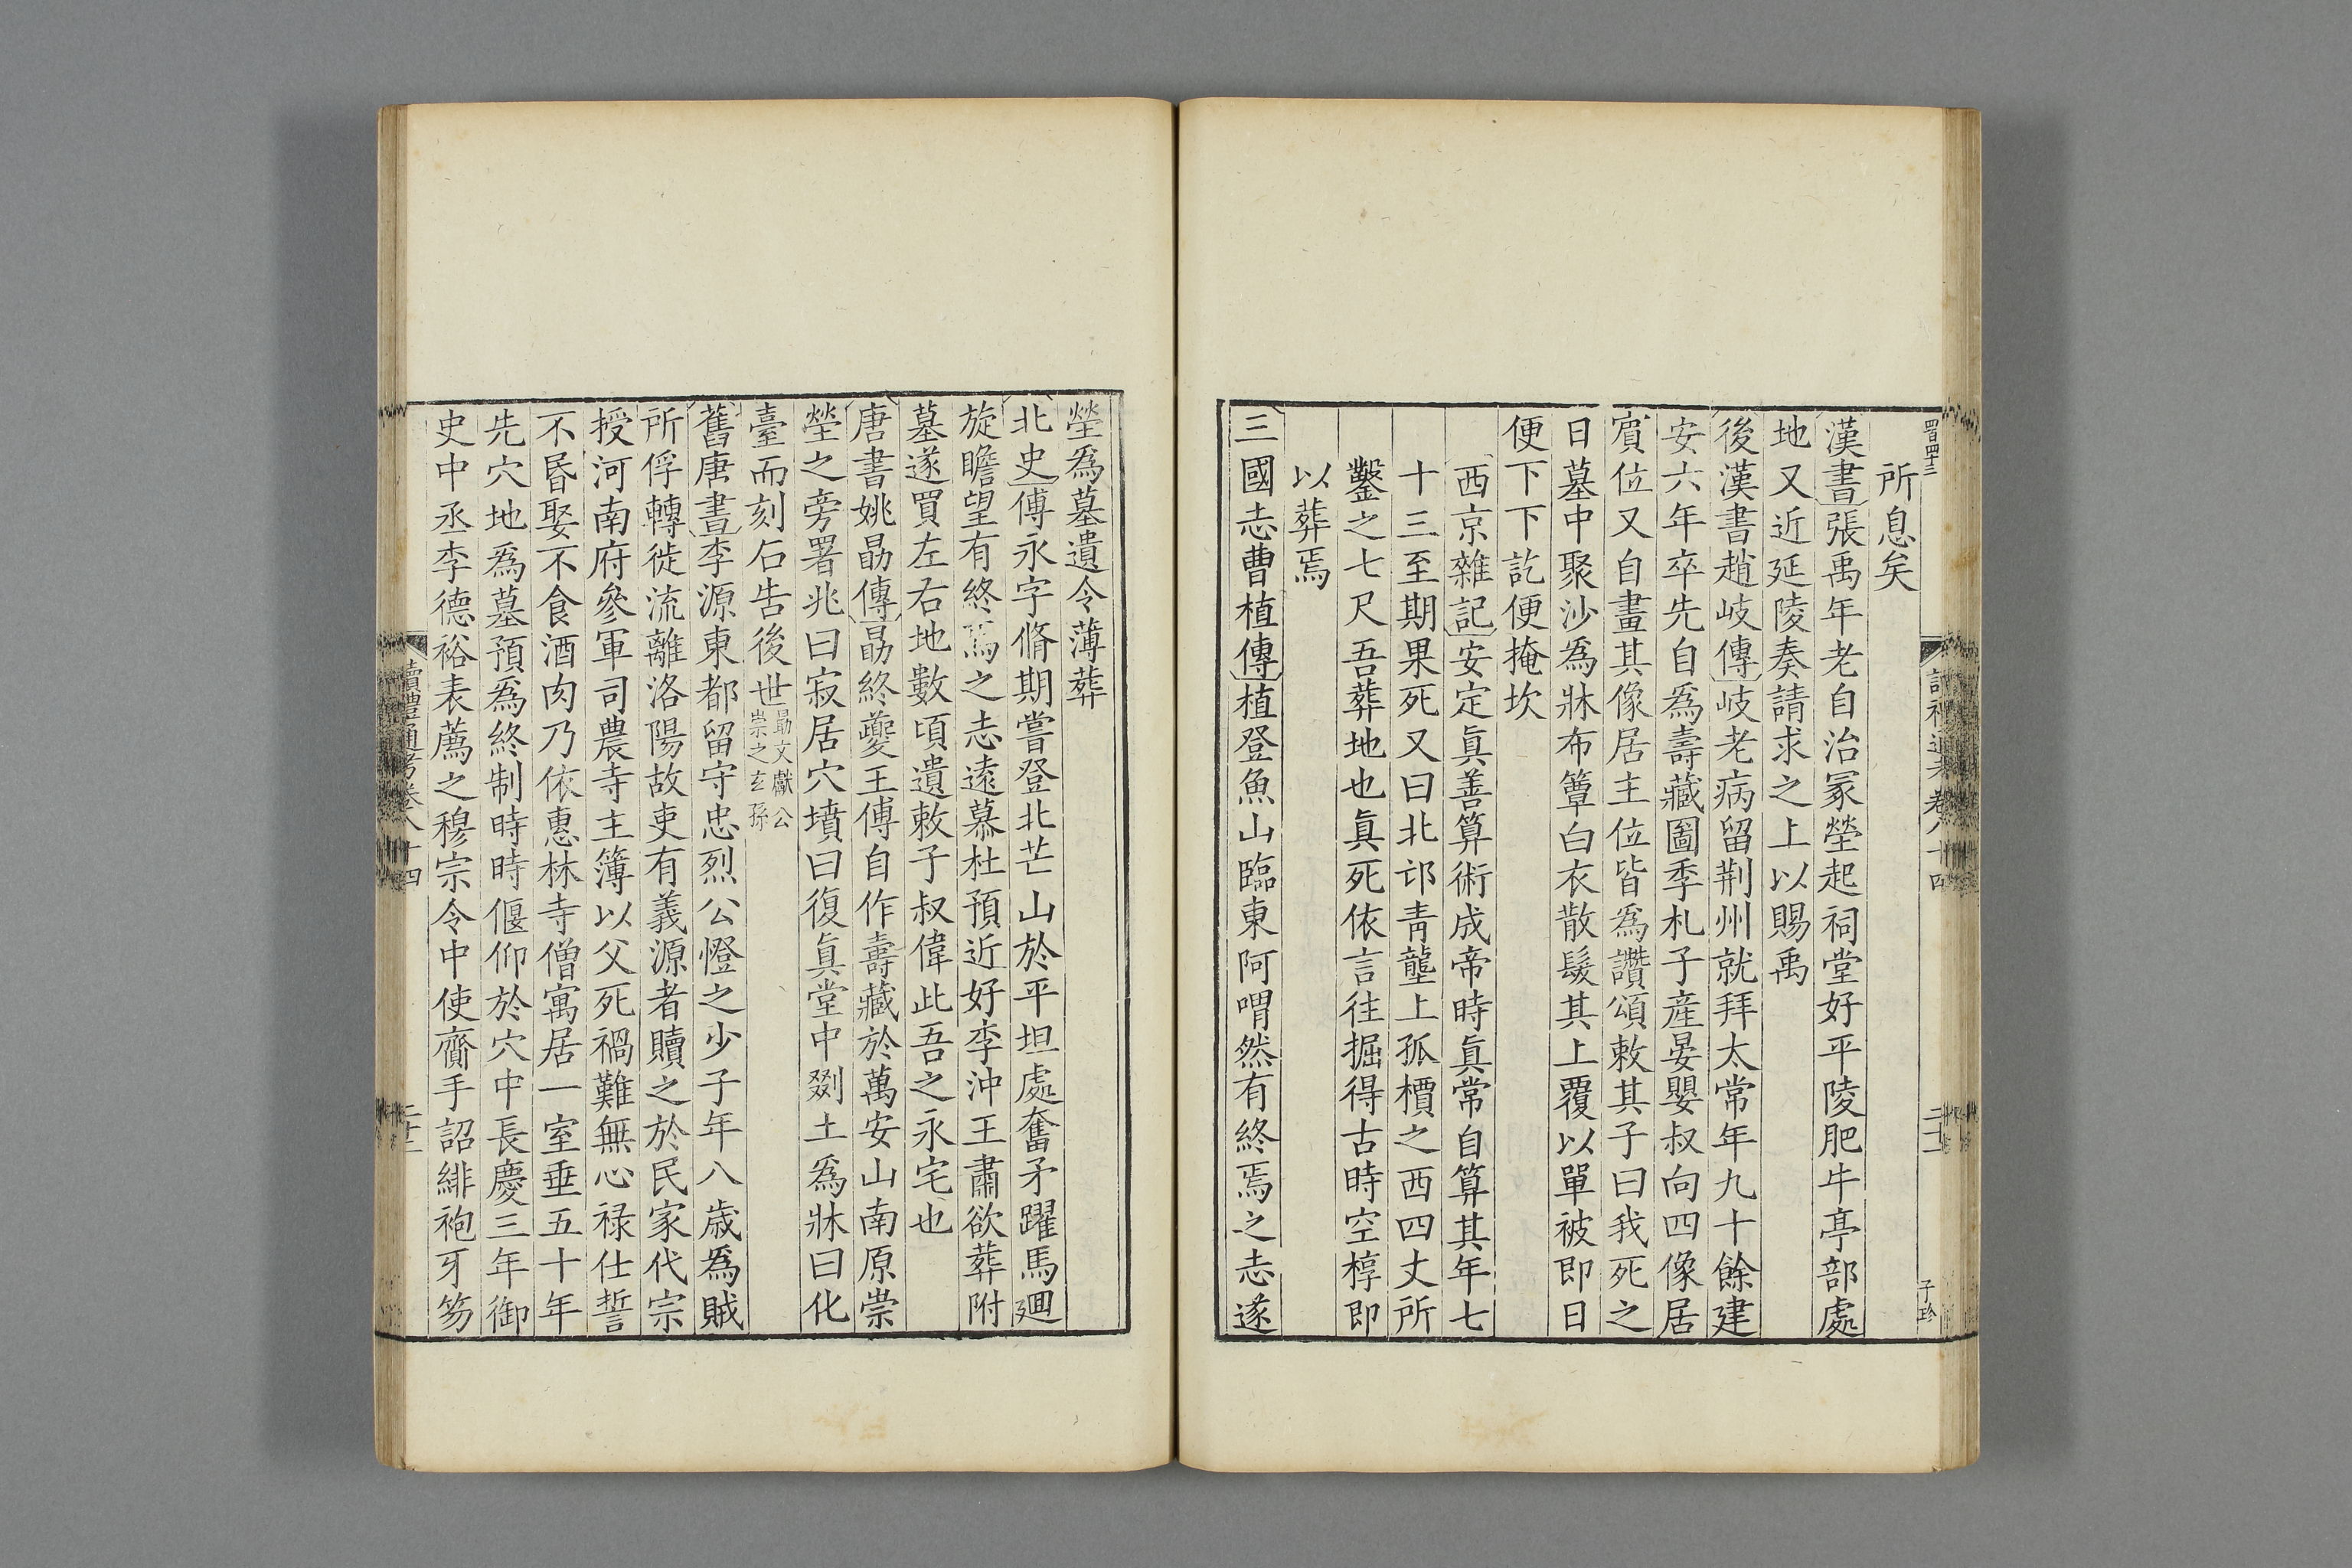 四百四十三
讀禮通考卷八十四
二十二
子珍
所息矣
漢書張禹年老自治冢塋起祠堂好平陵肥牛亭部處
地又近延陵奏請求之上以賜禹
後漢書趙岐傳岐老病留荆州就拜太常年九十餘建
安六年卒先自爲壽藏圖季札子產晏嬰叔向四像居
賓位又自畫其像居主位皆爲讚頌敕其子曰我死之
日墓中聚沙爲牀布簟白衣散髮其上覆以單被即日
便下下訖便掩坎
西京雜記安定眞善算術成帝時眞常自算其年七
十三至期果死又曰北邙青壟上孤檟之西四丈所
鑿之七尺吾葬地也眞死依言往掘得古時空椁即
以葬焉
三國志曹植傳植登魚山臨東阿喟然有終焉之志遂
塋爲墓遺令薄葬
北史傅永字脩期嘗登北芒山於平坦處奮矛躍馬𢌞
旋瞻望有終焉之志遠慕杜預近好李沖王肅欲葬附
墓遂買左右地數頃遺敕子叔偉此吾之永宅也
唐書姚勗傳勗終夔王傅自作壽藏於萬安山南原崇
塋之旁署兆曰寂居穴墳曰復眞堂中剟土爲牀曰化
臺而刻石告後世勗文獻公崇之玄孫
舊唐書李源東都留守忠烈公憕之少子年八歳爲賊
所俘轉徙流離洛陽故吏有義源者贖之於民家代宗
授河南府參軍司農寺主簿以父死禍難無心禄仕誓
不昬娶不食酒肉乃依惠林寺僧寓居一室垂五十年
先穴地爲墓預爲終制時時偃仰於穴中長慶三年御
史中丞李德裕表薦之穆宗令中使齎手詔緋袍牙笏
讀禮通考卷八十四
二十二